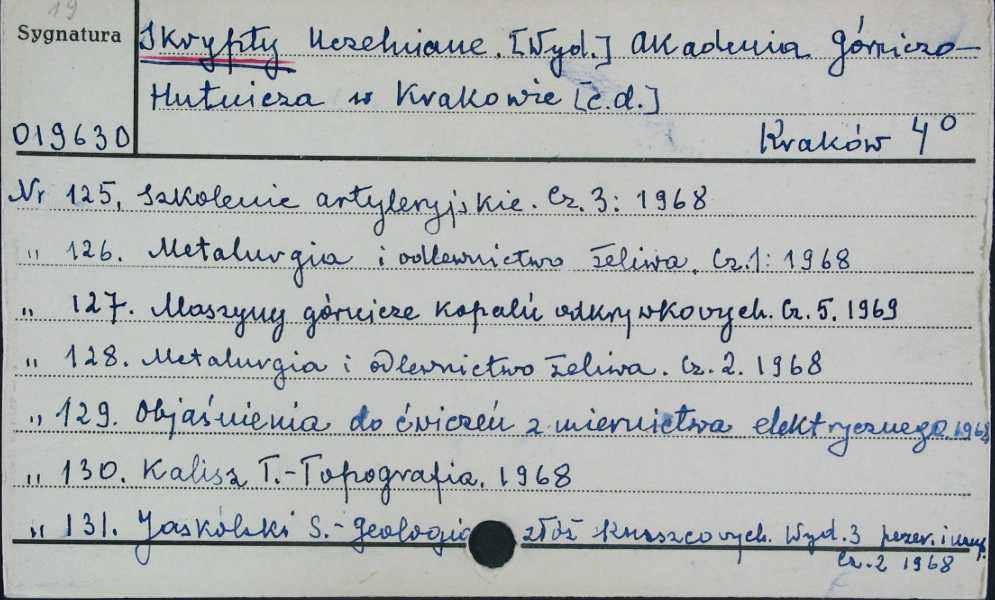 19
Sygnatura
Skrypty Uczelniane. [Wyd.] Akademia Górniczo-
Hutnicza w Krakowie [c.d.]
019630
Kraków 4°
Nr 125. Szkolenie artyleryjskie. Cz. 3: 1968
„ 126. Metalurgia i odlewnictwo żeliwa. Cz. 1: 1968
„ 127. Maszyny górnicze kopalń odkrywkowych. Cz. 5. 1969
„ 128. Metalurgia i odlewnictwo żeliwa. Cz. 2. 1968
„ 129. Objaśnienia do ćwiczeń z miernictwa elektrycznego. 1968
„ 130. Kalisz T.-Topografia. 1968
„ 131. Jaskólski S.- Geologia złóż kruszcowych. Wyd. 3 przer. i uzup.
Cz. 2 1968